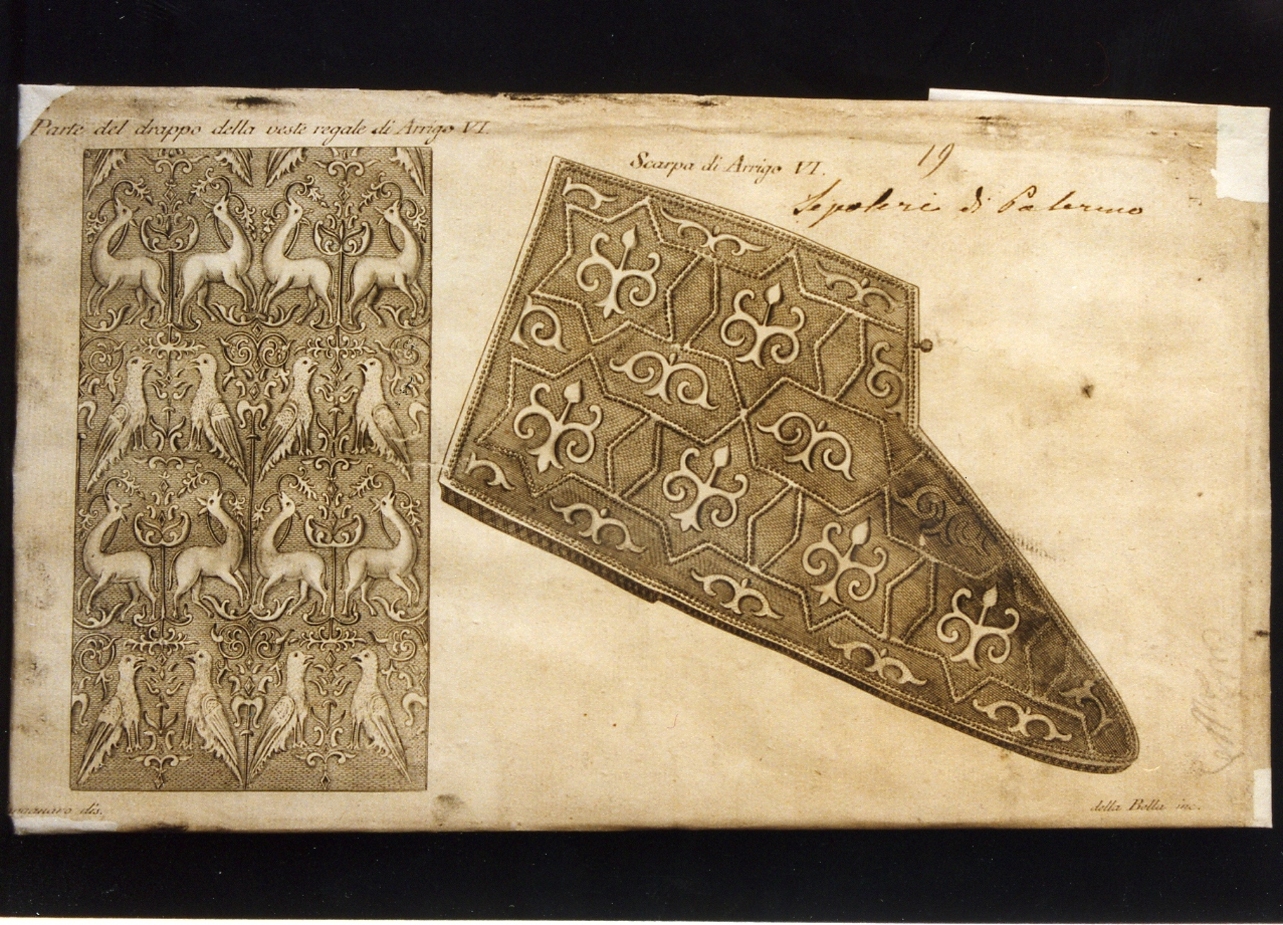 Parte del drappo della veste regale di Arrigo VI.
Scarpa di Arrigo VI.
19
Sepolcri di Palermo
dis.
della Bella inc.